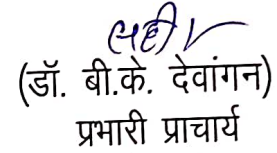 सही/
(डॉ. बी.के. देवांगन)
प्रभारी प्राचार्य